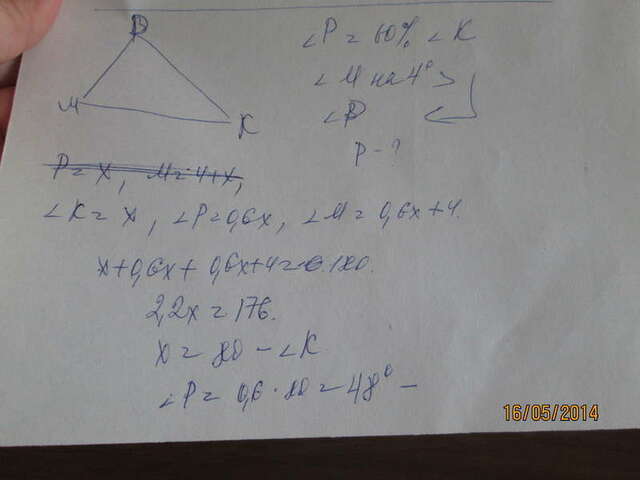 P
M
K
∠P = 60% ∠K
∠M на 4° >
∠P
P - ?
P = x, M = 4+x,
∠K = x, ∠P = 0,6x, ∠M = 0,6x + 4.
x + 0,6x + 0,6x + 4 = 180.
2,2x = 176.
x = 80 - ∠K
∠P = 0,6 · 80 = 48° -
16/05/2014